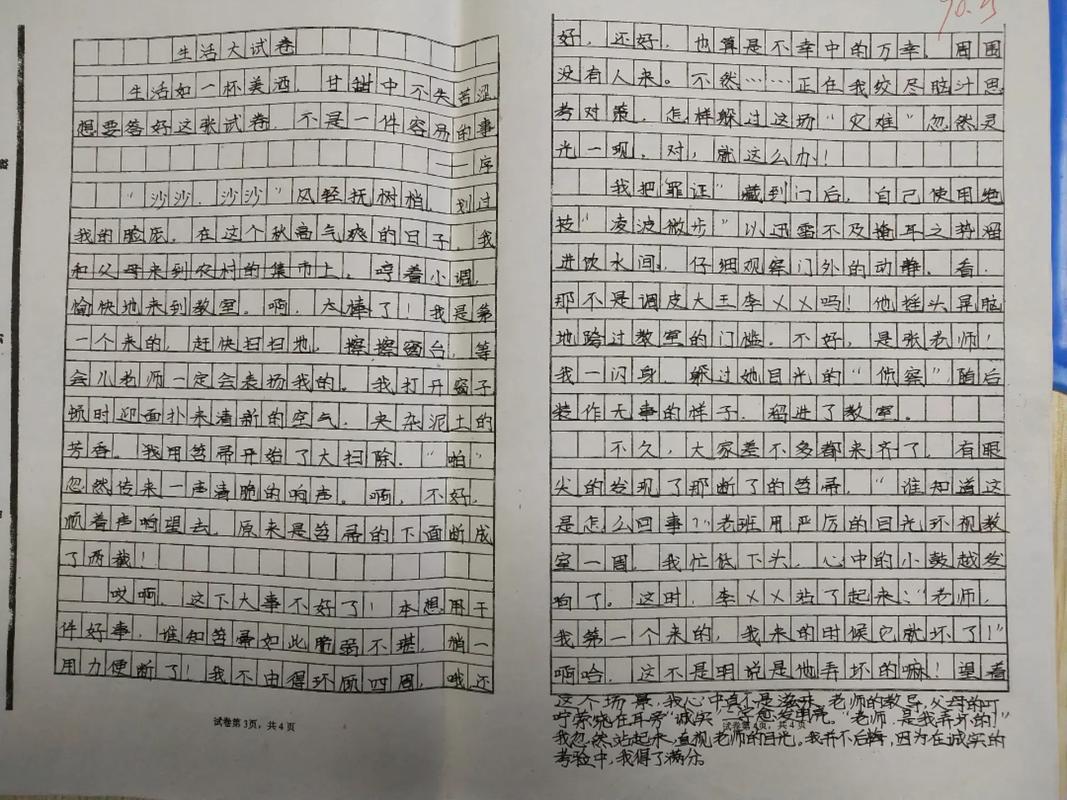 生活大试卷
生活如一杯美酒，甘甜中不失苦涩，
想要答好这张试卷，不是一件容易的事
——序
“沙沙，沙沙”风轻抚树梢，划过
我的脸庞。在这个秋高气爽的日子，我
和父母来到农村的集市上。哼着小调，
愉快地来到教室。啊，太棒了！我是第
一个来的，赶快扫扫地，擦擦窗台，等
会儿老师一定会表扬我的。我打开窗子
顿时迎面扑来清新的空气，夹杂泥土的
芳香。我用笤帚开始了大扫除。“啪”
忽然传来一声清脆的响声。啊，不好，
顺着声响望去，原来是笤帚的下面断成
了两截！
哎啊，这下大事不好了！本想用于
件好事，谁知笤帚如此脆弱不堪，稍一
用力便断了！我不由得环顾四周，哦还
试卷第3页，共4页
90.5
好，还好，也算是不幸中的万幸，周围
没有人来。不然……正在我绞尽脑汁思
考对策，怎样躲过这场“灾难”忽然灵
光一现，对，就这么办！
我把罪证”藏到门后，自己使用绝
技“凌波微步”以迅雷不及掩耳之势溜
进饮水间，仔细观察门外的动静，看，
那不是调皮大王李××吗！他摇头晃脑
地跨过教室的门槛。不好，是张老师！
我一闪身，躲过她目光的“侦察”随后
装作无事的样子，溜进了教室。
不久，大家差不多都来齐了，有眼
尖的发现了那断了的笤帚，“谁知道这
是怎么回事？”老班用严厉的目光环视教
室一周，我忙低下头，心中的小鼓越发
响了。这时，李××站了起来：“老师，
我第一个来的，我来的时候它就坏了！”
啊哈，这不是明说是他弄坏的嘛！望着
这个场景，我心中真不是滋味，老师的教导，父母的叮
咛萦绕在耳旁“诚实”“老师，是我弄坏的！”
试卷第4页，共4页
我忽然站起来，直视老师的目光。我并不后悔，因为在诚实的
考验中，我得了满分。